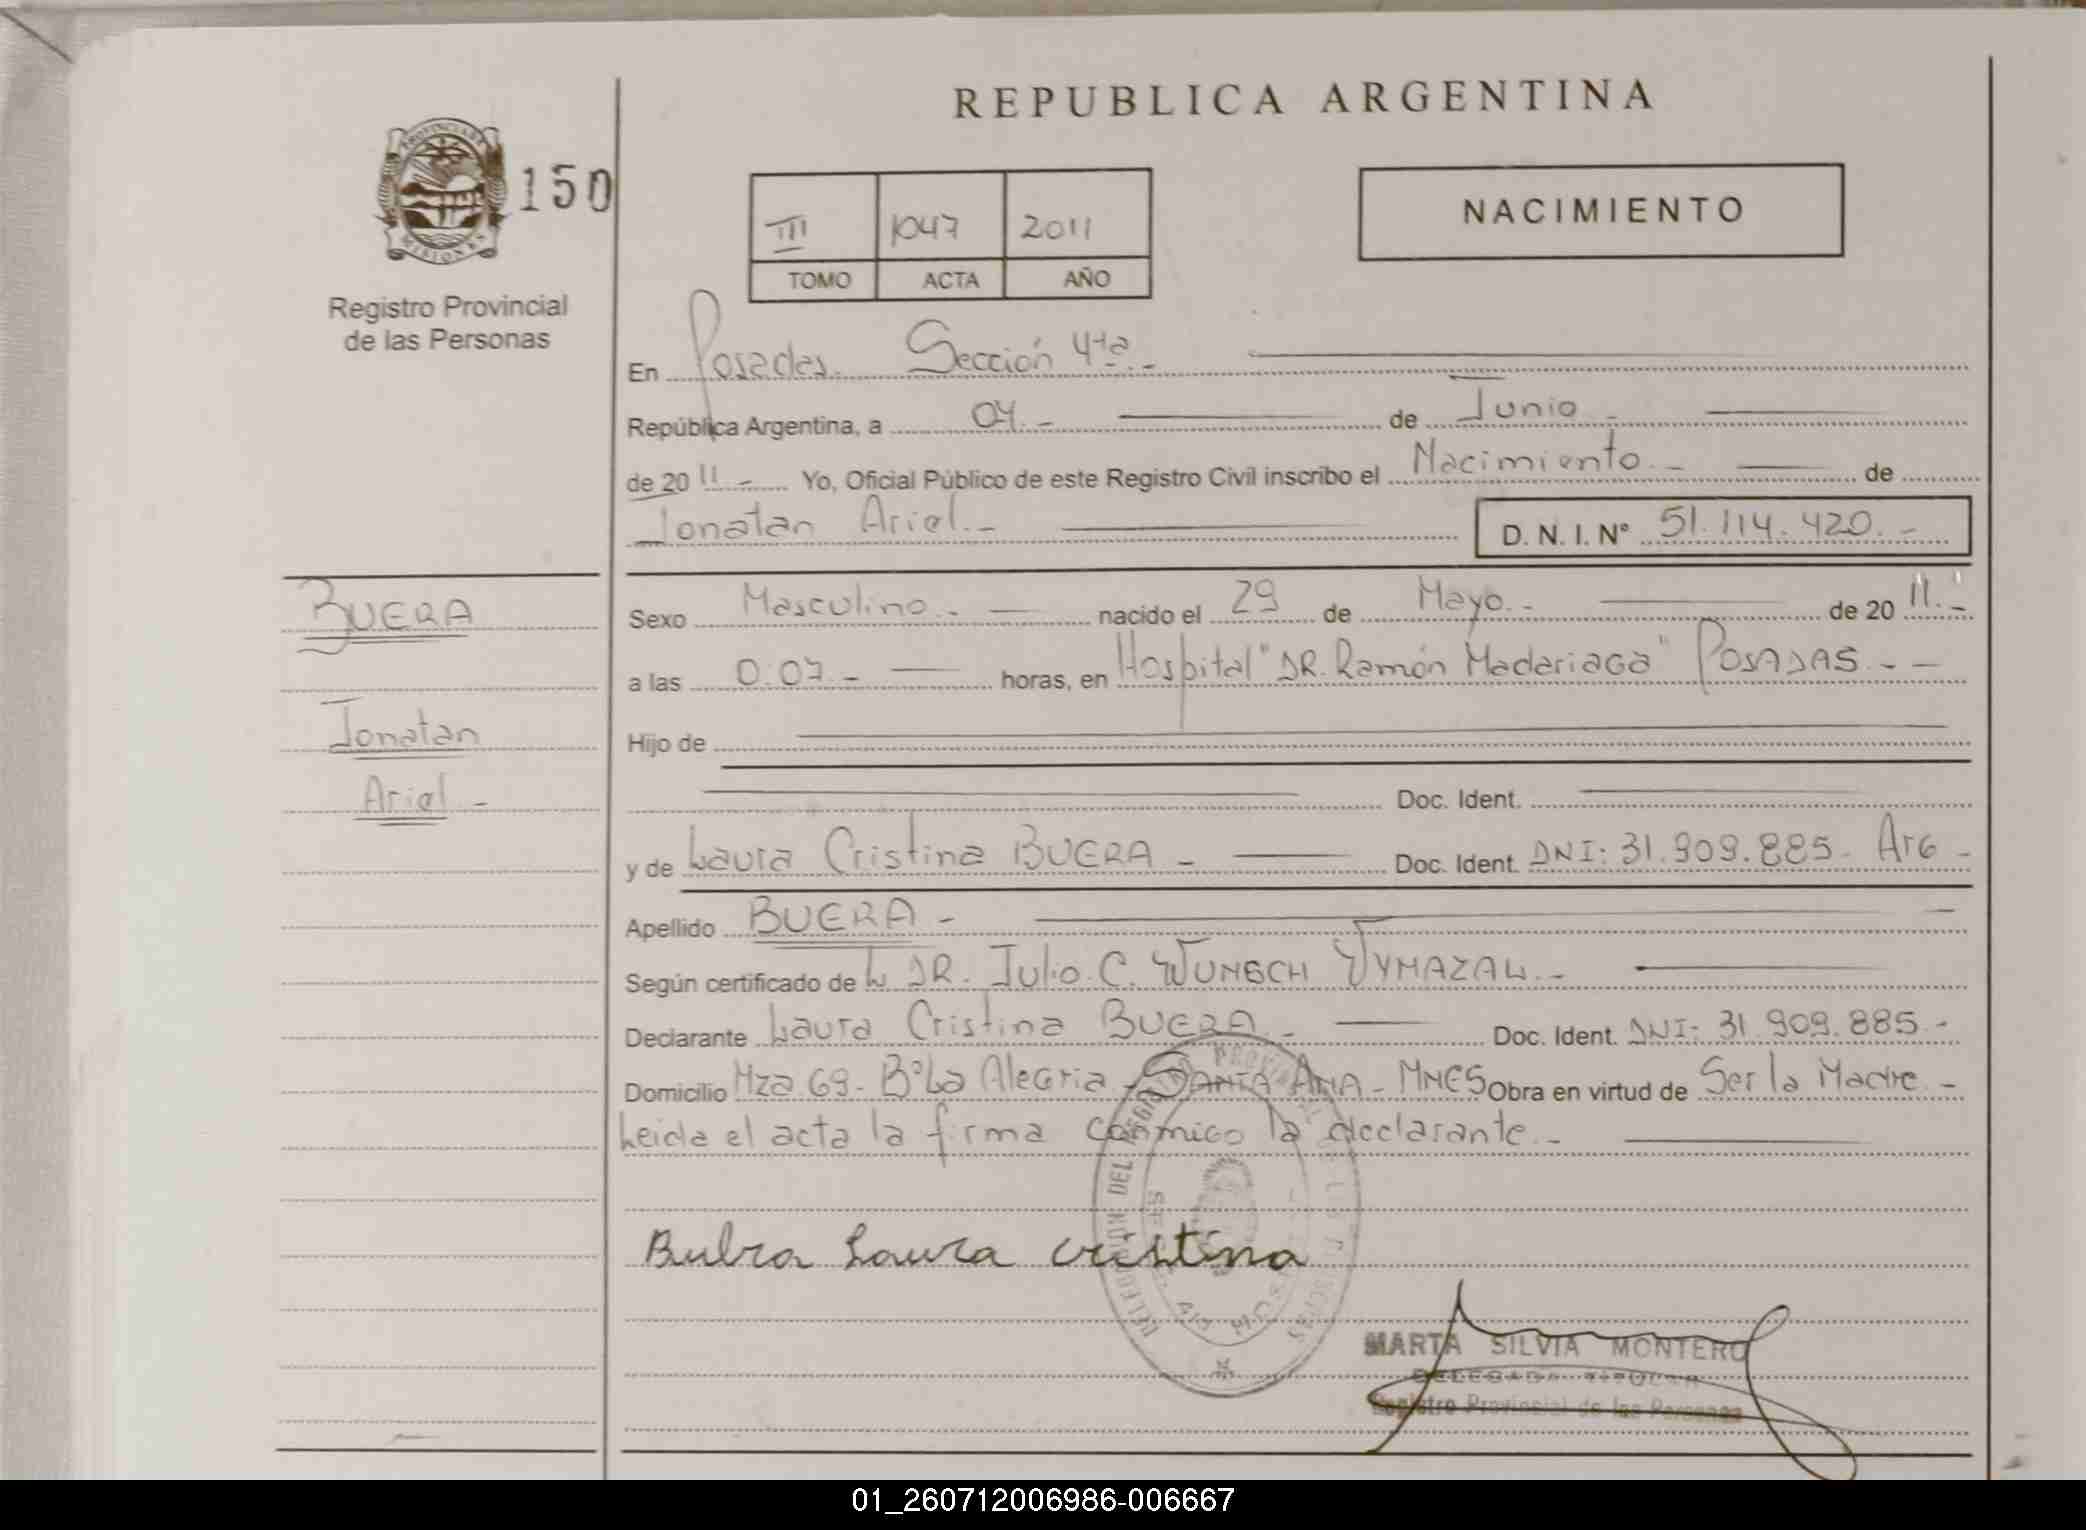 REPUBLICA ARGENTINA
PROVINCIA DE
MISIONES
150
Registro Provincial
de las Personas
III 1047 2011
TOMO ACTA AÑO
NACIMIENTO
En Posadas. Sección 4ta.-
República Argentina, a 04.- de Junio.-
de 2011.- Yo, Oficial Público de este Registro Civil inscribo el Nacimiento.- de
Jonatan Ariel.- D. N. I. Nº 51.114.420.-
BUERA
Jonatan
Ariel -
Sexo Masculino.- nacido el 29 de Mayo.- de 2011.-
a las 0:07.- horas, en Hospital "DR. Ramón Madariaga" POSADAS.- -
Hijo de
Doc. Ident.
y de Laura Cristina BUERA - Doc. Ident. DNI: 31.909.885- Arg -
Apellido BUERA -
Según certificado de L DR. Julio C. WUNSCH VYMAZAL.-
Declarante Laura Cristina BUERA.- Doc. Ident. DNI: 31.909.885.-
Domicilio Mza 69- Bº La Alegria - SANTA ANA - MNES Obra en virtud de Ser la Madre -
Leida el acta la firma conmigo la declarante.-
Buera Laura Cristina
MARTA SILVIA MONTERO
DELEGADA TITULAR
Registro Provincial de las Personas
01_260712006986-006667